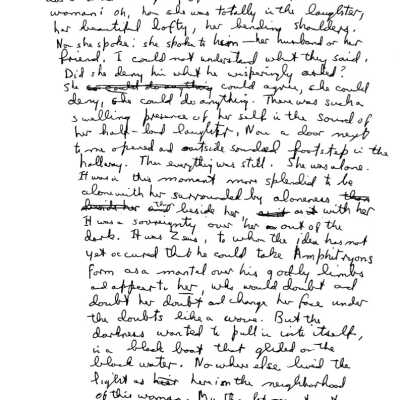 woman: oh, how she was totally in the laughter,
her beautiful lofty, her bending shoulders.
Now she spoke: she spoke to him — her husband or her
friend. I could not understand what they said.
Did she deny him what he whisperingly asked?
She could agree, she could
deny, she could do anything. There was such a
swelling presence of her self in the sound of
her half-loud laughter. Now a door next
to me opened and outside sounded footstep in the
hallway. Then everything was still. She was alone.
It was in this moment more splendid to be
alone with her surrounded by aloneness
beside her as with her
It was a sovereignty over her out of the
dark. It was Zeus, to whom the idea has not
yet occured that he could take Amphitryons
form as a mantel over his godly limbs
and appear to her, who would doubt and
doubt her doubt and change her face under
the doubts like a But the
darkness wanted to pull in into itself,
in a black boat that glided on the
black water. Nowhere else lived the
light as here in the neighborhood
of this woman.